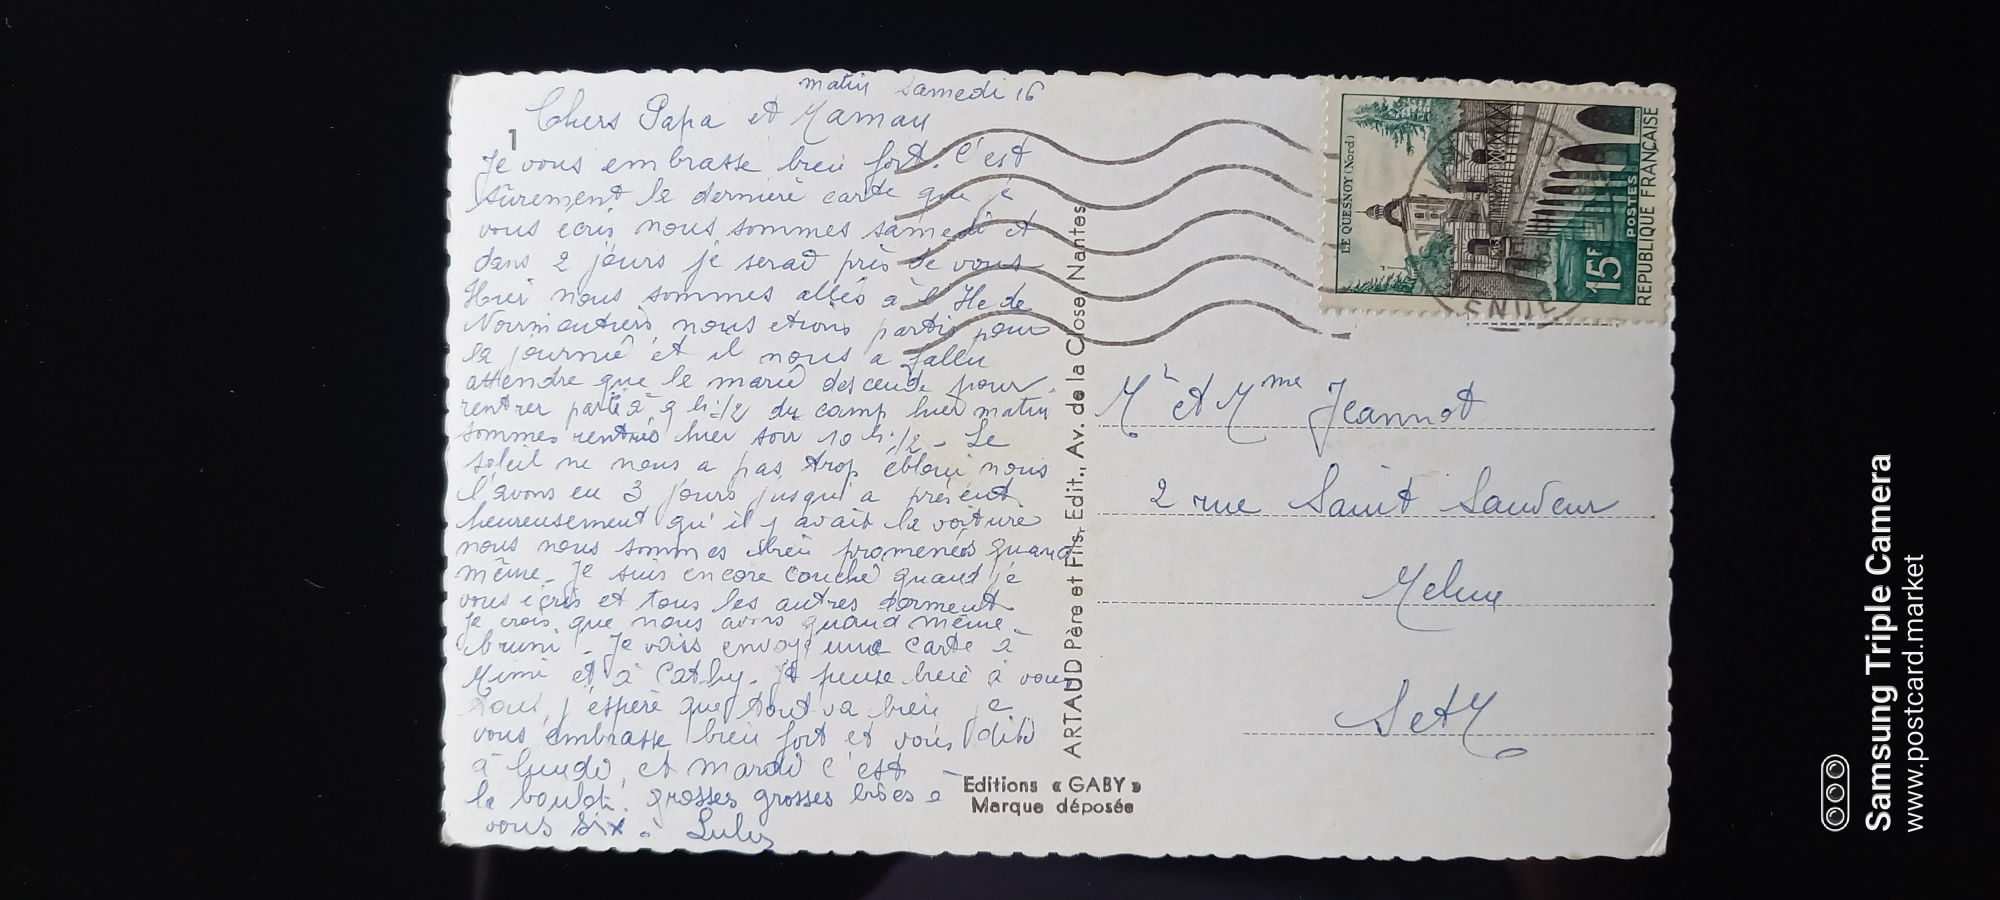 matin samedi 16
Chers Papa et Maman
1
Je vous embrasse bien fort. C'est
sûrement la dernière carte que je
vous ecris nous sommes samedi et
dans 2 jours je serai près de vous
Hier nous sommes allés à l'Ile de
Noirmoutiers nous etions partis pour
la journée et il nous a fallu
attendre que la mareé descende pour
rentrer parti à 9 h 1/2 du camp hier matin
sommes rentrés hier soir 10 h 1/2 - Le
soleil ne nous a pas trop ébloui nous
l'avons eu 3 jours jusqu'a présent
heureusement qu'il y avait la voiture
nous nous sommes bien promenés quand
même - Je suis encore couché quand je
vous écris et tous les autres dorment
Je crois que nous avons quand même
bruni - Je vais envoyé une carte à
Mimi et à Cathy. Je pense bien à vous
tous, j'espère que tout va bien je
vous embrasse bien fort et vous dit
à lundi, et mardi c'est
le boulot! grosses grosses bises à
vous six. Lulu
ARTAUD Père et Fils, Edit., Av. de la Close, Nantes
Editions « GABY »
Marque déposée
LE QUESNOY (Nord)
15F
POSTES
REPUBLIQUE FRANÇAISE
Mr et Mme Jeannot
2 rue Saint Sauveur
Melun
S et M
Samsung Triple Camera
www.postcard.market